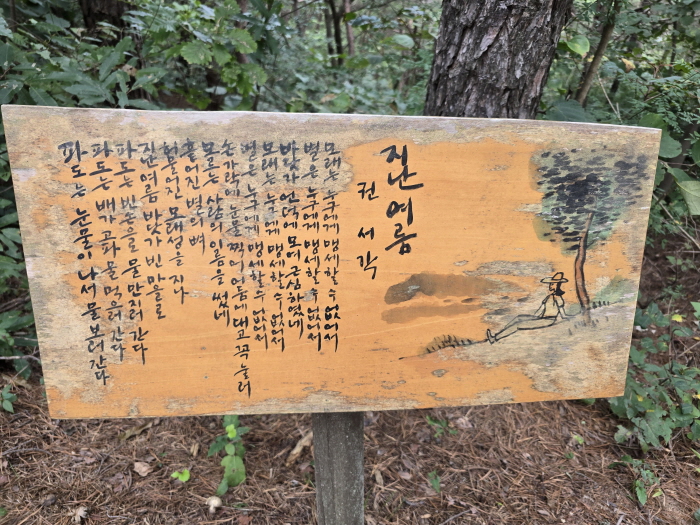 지난여름
권서각
모래는 누구에게 맹세할 수 없어서
별은 누구에게 맹세할 수 없어서
바닷가 언덕에 모여 근심하였네
모래는 누구에게 맹세할 수 없어서
별은 누구에게 맹세할 수 없어서
손가락에 눈물 찍어 어둠에 대고 꼭 눌러
모르는 사람의 이름을 썼네
흩어진 별의 뼈
허물어진 모래성을 지나
지난여름 바닷가 빈 마을로
파도는 빈손을 물 만지러 간다
파도는 배가 고파 물 먹으러 간다
파도는 눈물이 나서 물 보러 간다